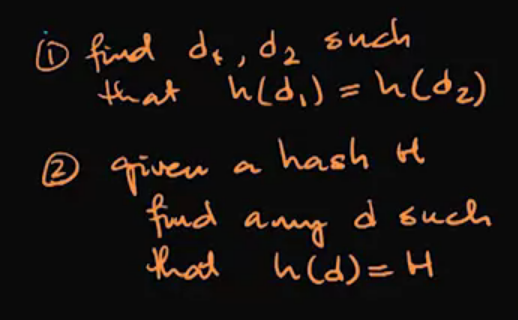 ① find d₁, d₂ such
that h(d₁) = h(d₂)
② given a hash H
find any d such
that h(d) = H